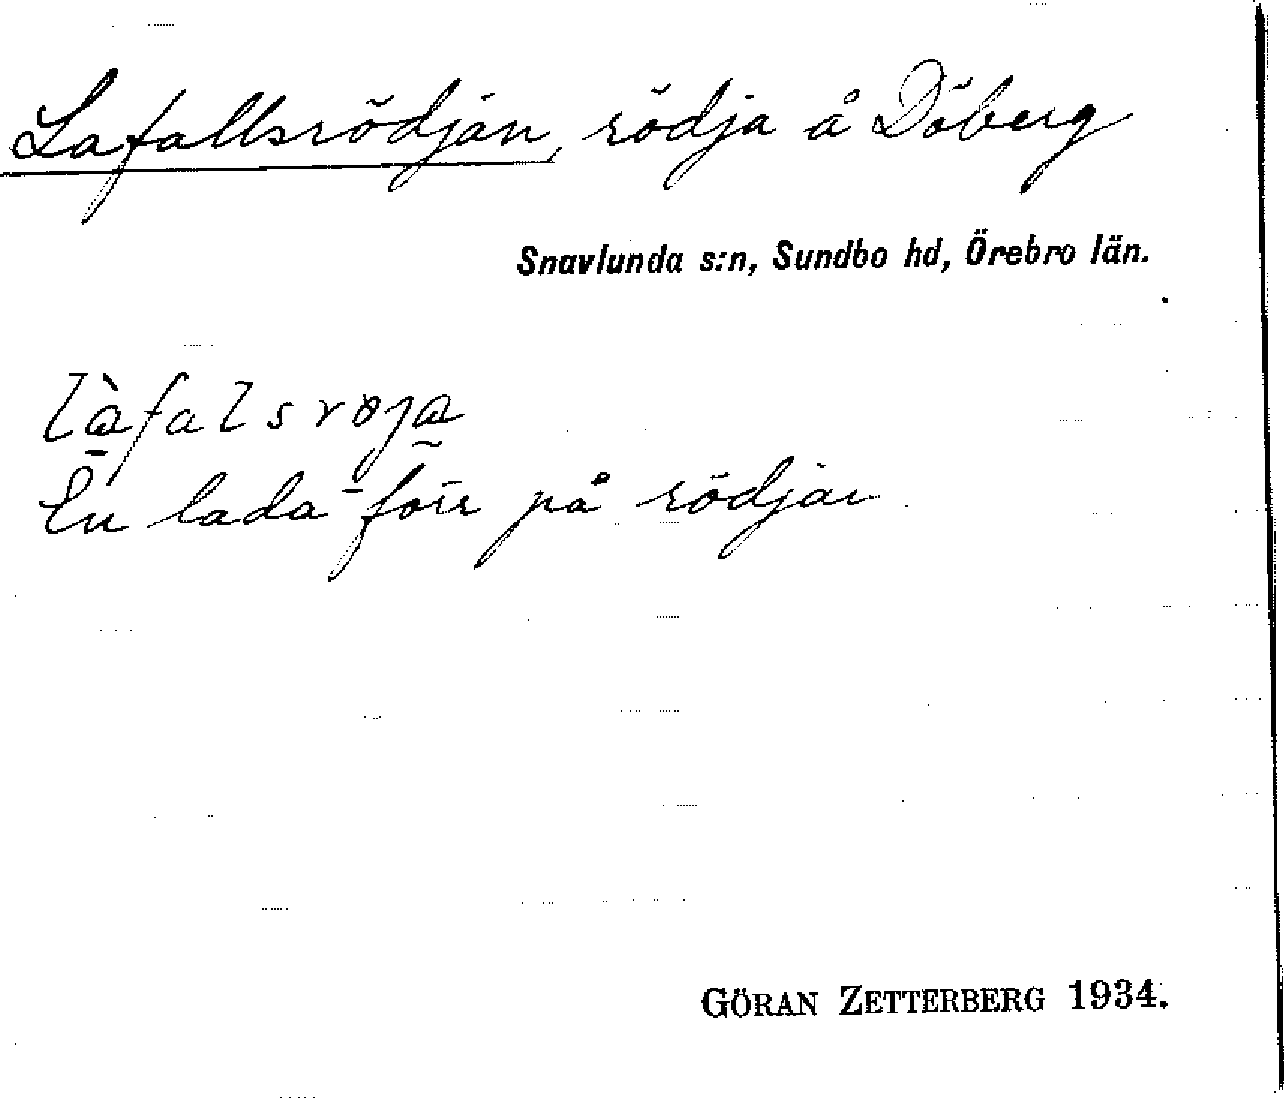 Lafallsrödjan, rödja å Döberg
Snavlunda s:n, Sundbo hd, Örebro län.
làfalsrøja
En lada förr på rödjan
GÖRAN ZETTERBERG 1934.